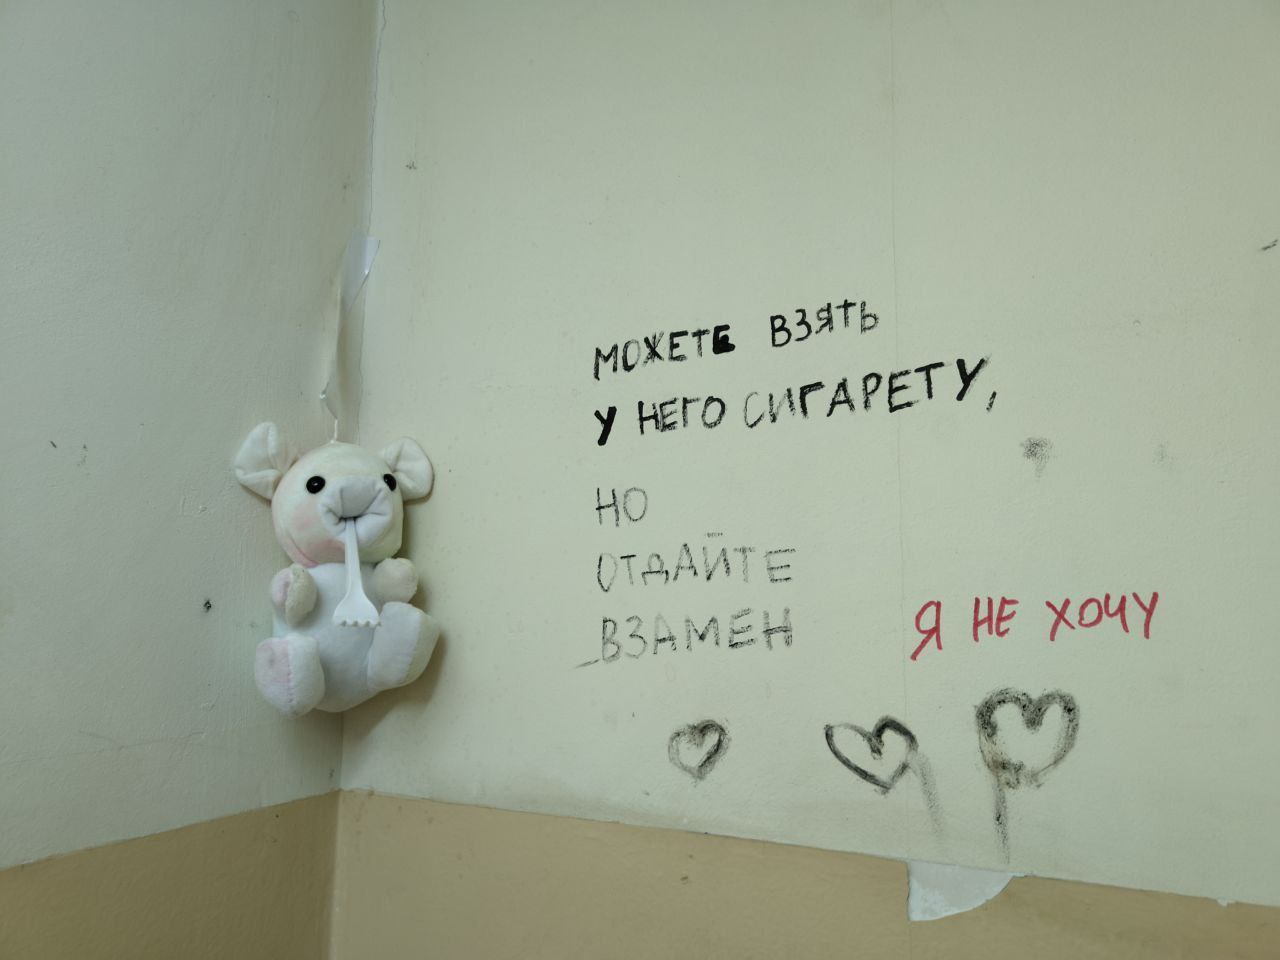 МОЖЕТЕ ВЗЯТЬ
У НЕГО СИГАРЕТУ,
НО
ОТДАЙТЕ
ВЗАМЕН
Я НЕ ХОЧУ